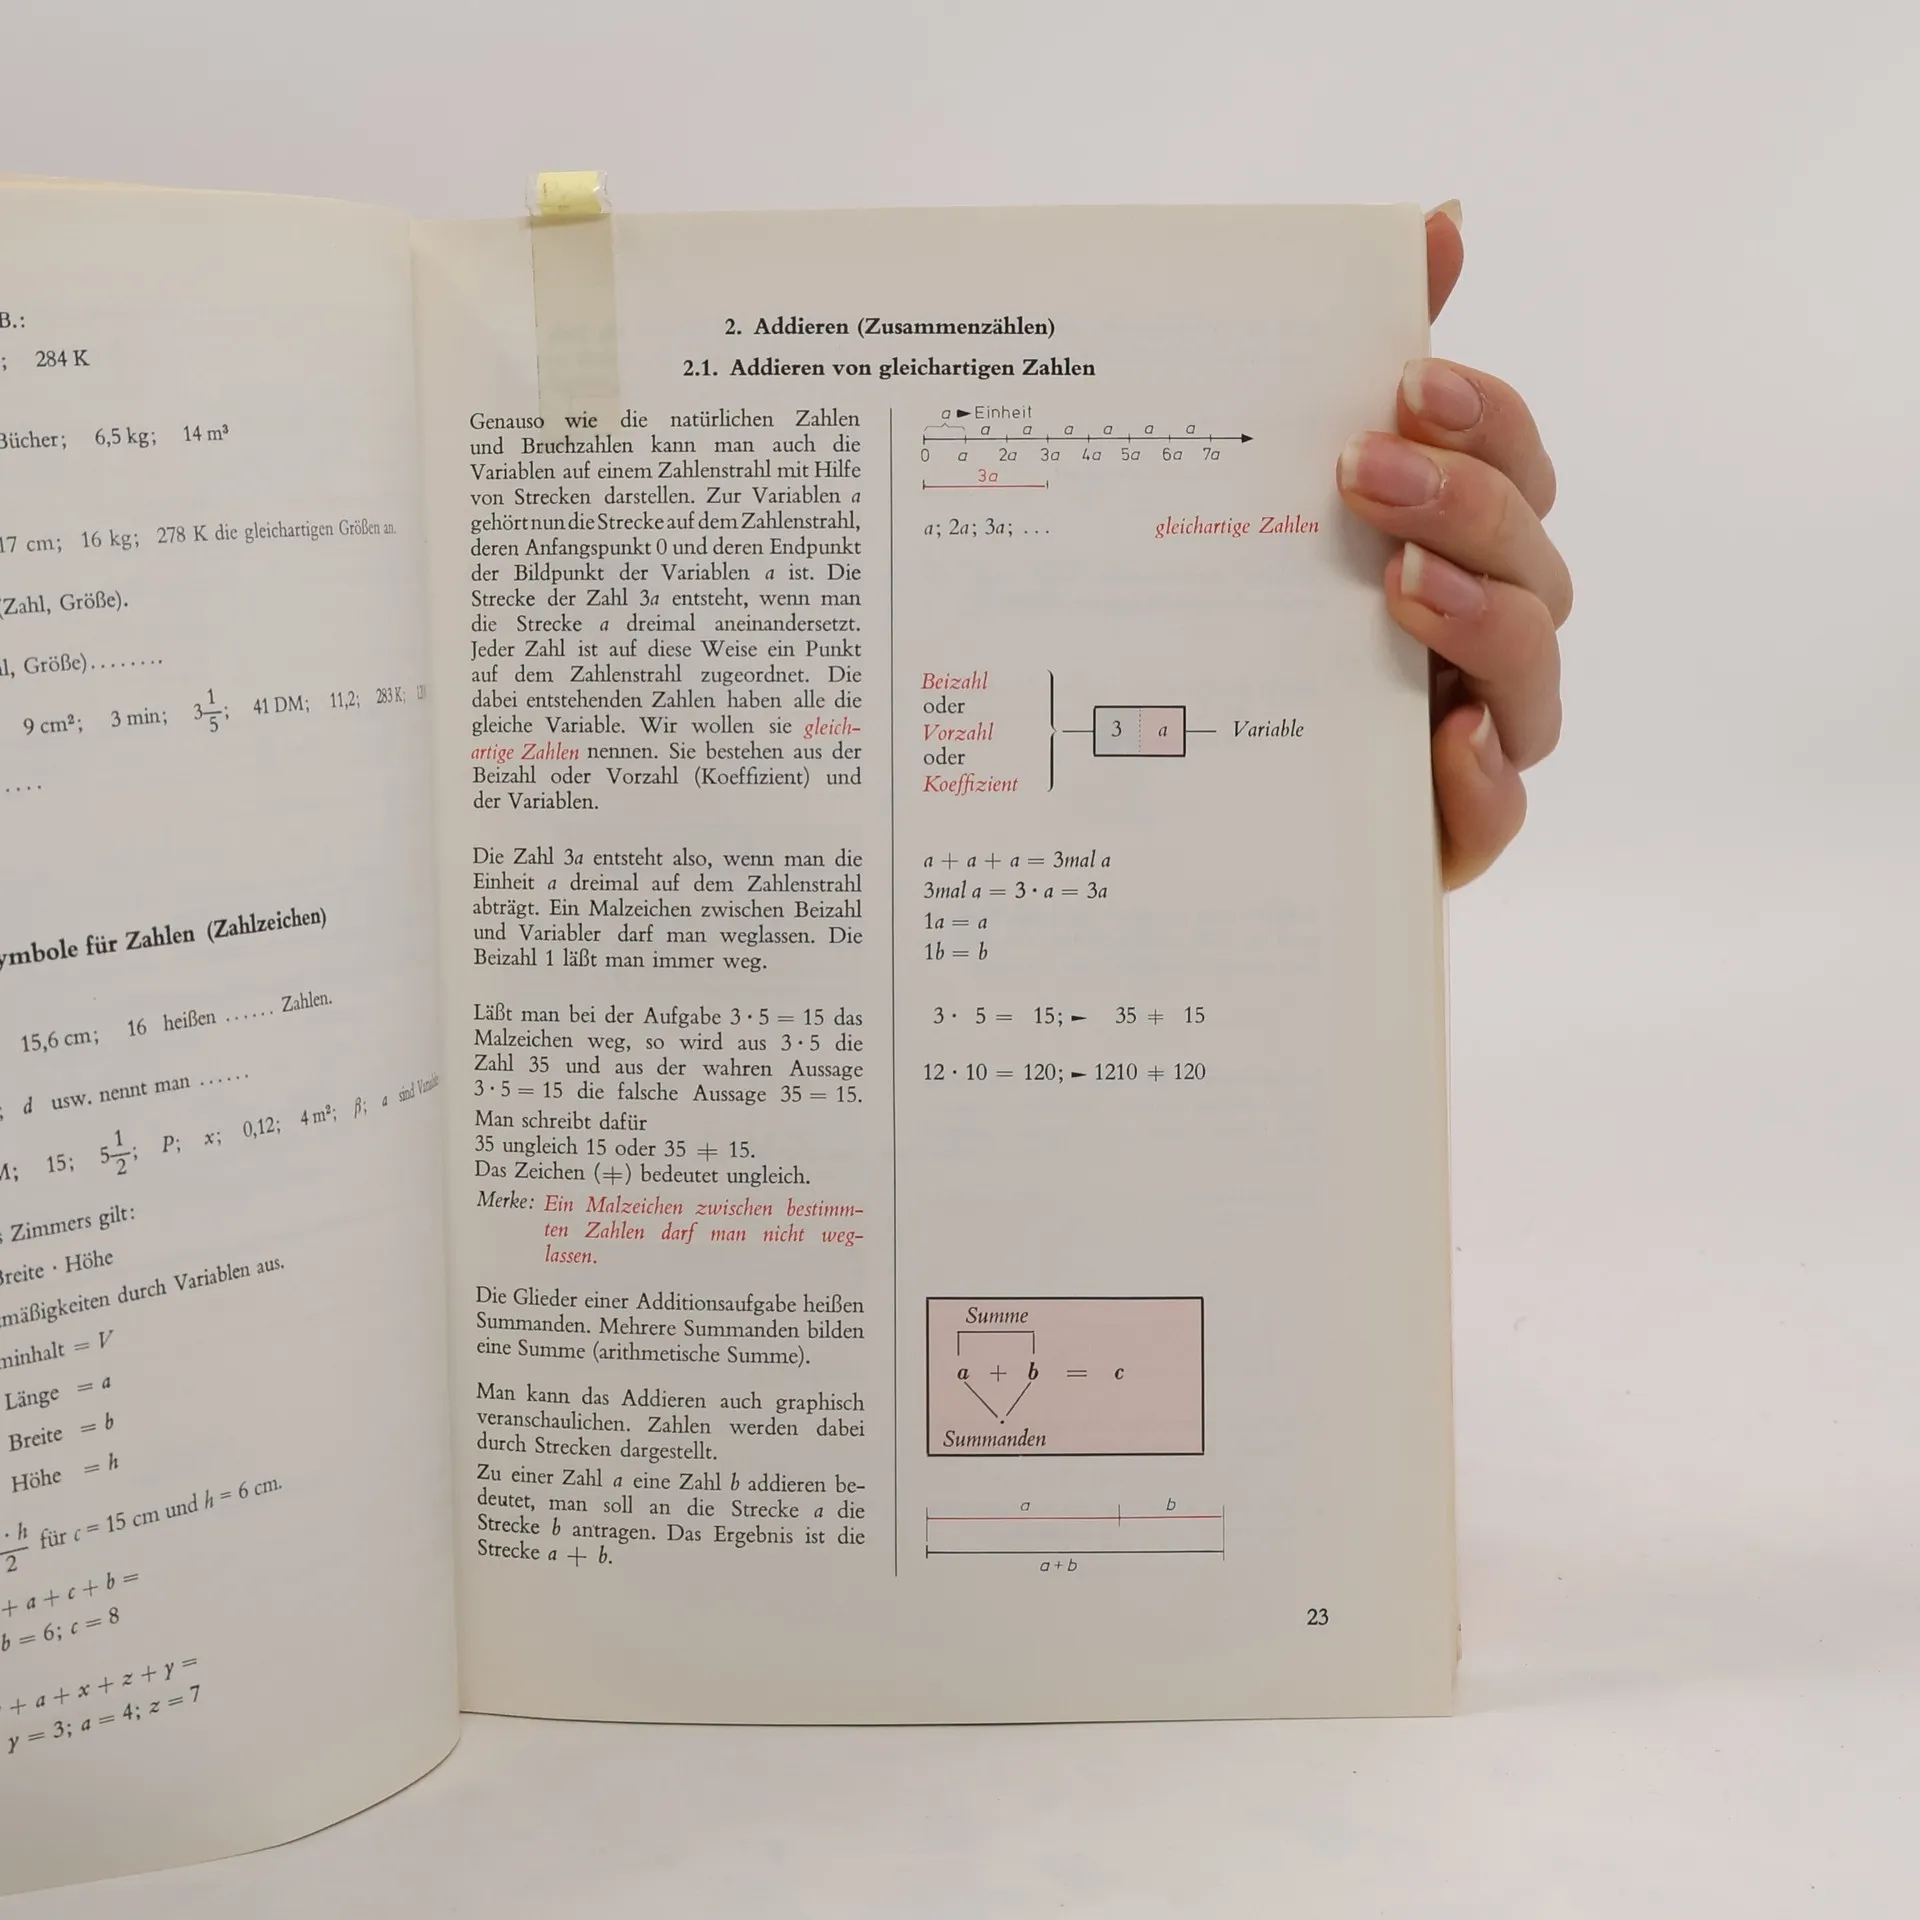 B.:
; 284 K
Bücher; 6,5 kg; 14 m³
17 cm; 16 kg; 278 K die gleichartigen Größen an.
(Zahl, Größe).
l, Größe)........
9 cm²; 3 min; 3 1/5; 41 DM; 11,2; 283 K;
....
ymbole für Zahlen (Zahlzeichen)
15,6 cm; 16 heißen ...... Zahlen.
; d usw. nennt man ......
M; 15; 5 1/2; P; x; 0,12; 4 m²; β; a sind
s Zimmers gilt:
Breite · Höhe
mäßigkeiten durch Variablen aus.
minhalt = V
Länge = a
Breite = b
Höhe = h
· h / 2 für c = 15 cm und h = 6 cm.
+ a + c + b =
b = 6; c = 8
+ a + x + z + y =
y = 3; a = 4; z = 7
2. Addieren (Zusammenzählen)
2.1. Addieren von gleichartigen Zahlen
Genauso wie die natürlichen Zahlen
und Bruchzahlen kann man auch die
Variablen auf einem Zahlenstrahl mit Hilfe
von Strecken darstellen. Zur Variablen a
gehört nun die Strecke auf dem Zahlenstrahl,
deren Anfangspunkt 0 und deren Endpunkt
der Bildpunkt der Variablen a ist. Die
Strecke der Zahl 3a entsteht, wenn man
die Strecke a dreimal aneinandersetzt.
Jeder Zahl ist auf diese Weise ein Punkt
auf dem Zahlenstrahl zugeordnet. Die
dabei entstehenden Zahlen haben alle die
gleiche Variable. Wir wollen sie gleich-
artige Zahlen nennen. Sie bestehen aus der
Beizahl oder Vorzahl (Koeffizient) und
der Variablen.
Die Zahl 3a entsteht also, wenn man die
Einheit a dreimal auf dem Zahlenstrahl
abträgt. Ein Malzeichen zwischen Beizahl
und Variabler darf man weglassen. Die
Beizahl 1 läßt man immer weg.
Läßt man bei der Aufgabe 3 · 5 = 15 das
Malzeichen weg, so wird aus 3 · 5 die
Zahl 35 und aus der wahren Aussage
3 · 5 = 15 die falsche Aussage 35 = 15.
Man schreibt dafür
35 ungleich 15 oder 35 ≠ 15.
Das Zeichen (≠) bedeutet ungleich.
Merke: Ein Malzeichen zwischen bestimm-
ten Zahlen darf man nicht weg-
lassen.
Die Glieder einer Additionsaufgabe heißen
Summanden. Mehrere Summanden bilden
eine Summe (arithmetische Summe).
Man kann das Addieren auch graphisch
veranschaulichen. Zahlen werden dabei
durch Strecken dargestellt.
Zu einer Zahl a eine Zahl b addieren be-
deutet, man soll an die Strecke a die
Strecke b antragen. Das Ergebnis ist die
Strecke a + b.
a ► Einheit
a a a a a a
0 a 2a 3a 4a 5a 6a 7a
3a
a; 2a; 3a; ... gleichartige Zahlen
Beizahl
oder
Vorzahl
oder
Koeffizient
3 a Variable
a + a + a = 3mal a
3mal a = 3 · a = 3a
1a = a
1b = b
3 · 5 = 15; ► 35 ≠ 15
12 · 10 = 120; ► 1210 ≠ 120
Summe
a + b = c
Summanden
a b
a + b
23